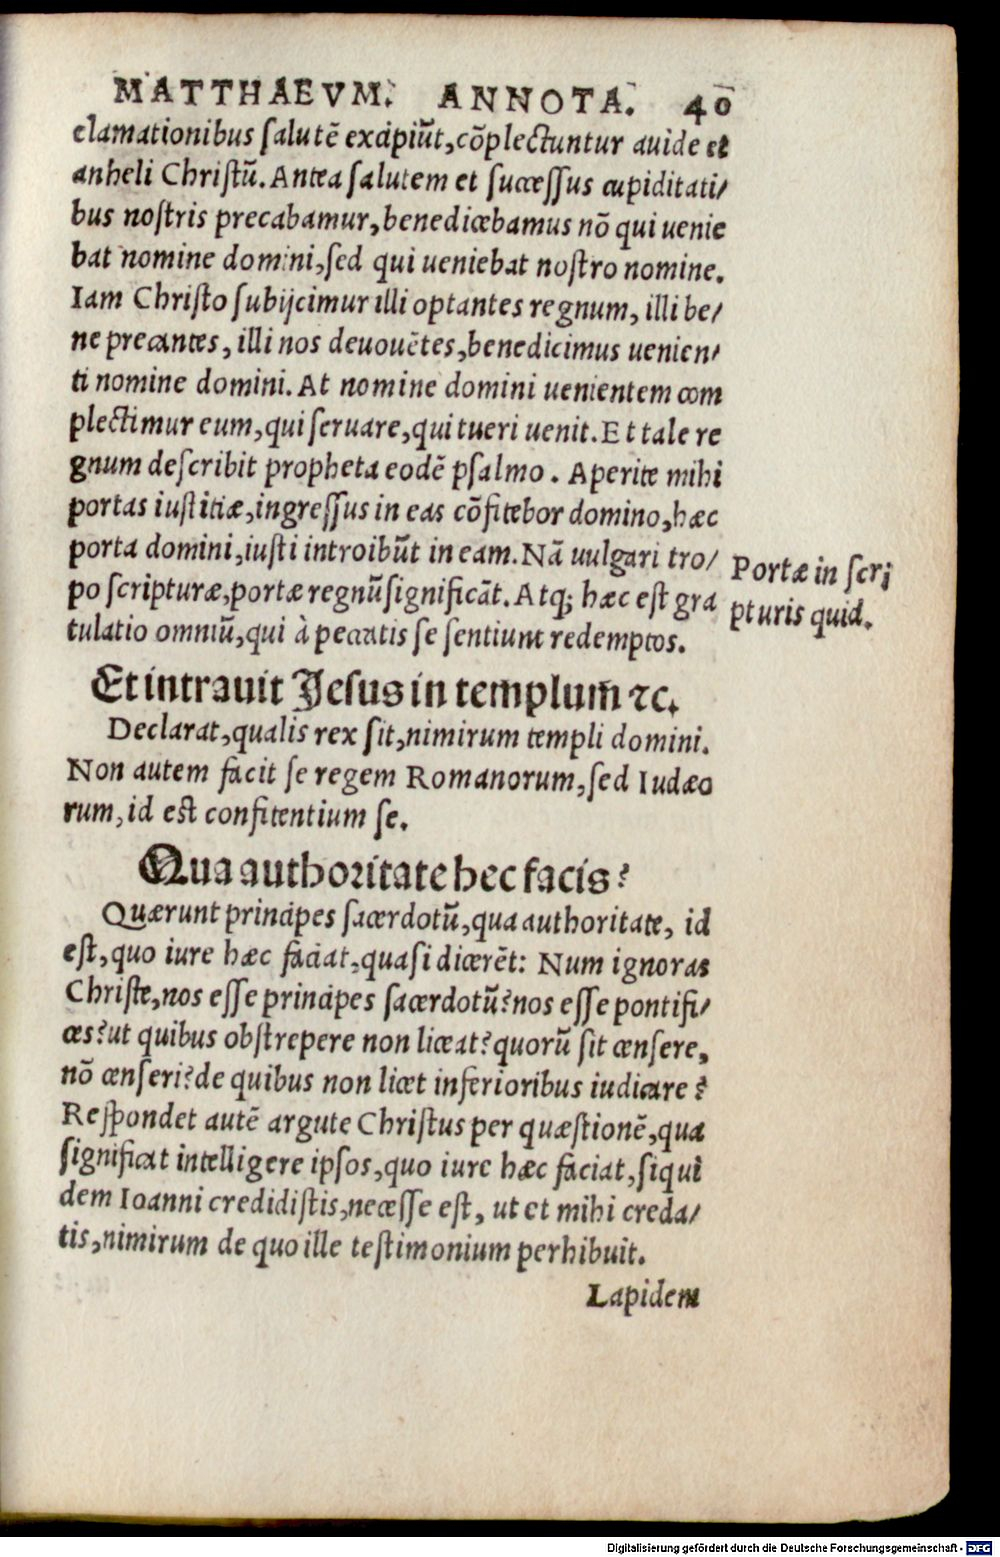 MATTHAEVM. ANNOTA. 40
clamationibus ſalutē excipiūt, cōplectuntur auide et
anheli Chriſtū. Antea ſalutem et ſucceſſus cupiditati/
bus noſtris precabamur, benedicebamus nō qui uenie
bat nomine domini, ſed qui ueniebat noſtro nomine.
Iam Chriſto ſubijcimur illi optantes regnum, illi be/
ne precantes, illi nos deuouētes, benedicimus uenien/
ti nomine domini. At nomine domini uenientem com
plectimur eum, qui ſeruare, qui tueri uenit. Et tale re
gnum deſcribit propheta eodē pſalmo. Aperite mihi
portas iuſtitiæ, ingreſſus in eas cōfitebor domino, hæc
porta domini, iuſti introibūt in eam. Nā uulgari tro/
po ſcripturæ, portæ regnū ſignificāt. Atq; hæc eſt gra
tulatio omniū, qui à peccatis ſe ſentiunt redemptos.
Portæ in ſcri
pturis quid.
Et intrauit Jeſus in templum̄ ⁊c.
Declarat, qualis rex ſit, nimirum templi domini.
Non autem facit ſe regem Romanorum, ſed Iudæo
rum, id eſt confitentium ſe.
Qua authoritate hec facis?
Quærunt principes ſacerdotū, qua authoritate, id
eſt, quo iure hæc faciat, quaſi dicerēt: Num ignoras
Chriſte, nos eſſe principes ſacerdotū? nos eſſe pontifi/
ces? ut quibus obſtrepere non liceat? quorū ſit cenſere,
nō cenſeri? de quibus non licet inferioribus iudicare?
Reſpondet autē argute Chriſtus per quæſtionē, qua
ſignificat intelligere ipſos, quo iure hæc faciat, ſiqui
dem Ioanni credidiſtis, neceſſe eſt, ut et mihi creda/
tis, nimirum de quo ille teſtimonium perhibuit.
Lapidem
Digitalisierung gefördert durch die Deutsche Forschungsgemeinschaft - DFG